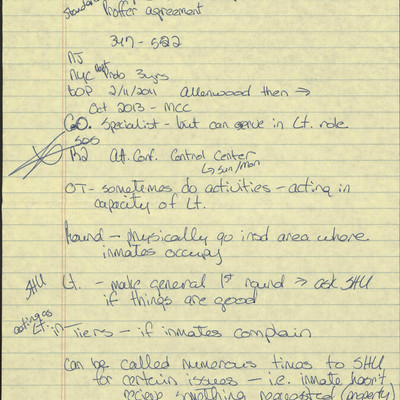 Standard
Proffer agreement
347-522
NJ
NYC Dept Prob 3yrs
BOP 2/11/2011 Allenwood then ⇒
Oct 2013 - MCC
CO. Specialist - but can serve in Lt. role
SOS
Att. Conf. Control Center
↳ Sun/Mon
OT - sometimes do activities - acting in
capacity of Lt.
Round - physically go into area where
inmates occupy
SHU Lt. - make general 1st round ⇒ ask SHU
if things are good
acting as Lt. in Tiers - if inmates complain
can be called numerous times to SHU
for certain issues - i.e. inmate hasn't
receive something requested (property)